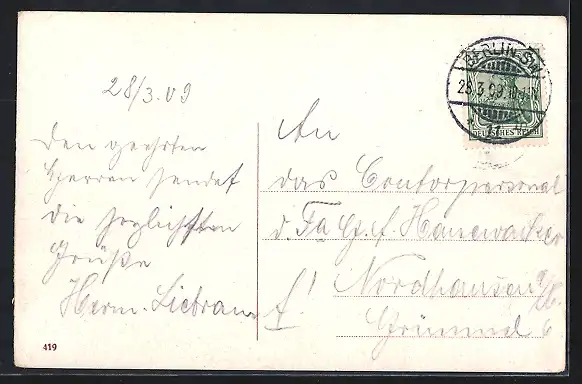 28/3.09
Den geehrten
Herren sendet
die herzlichsten
Grüße
Herm. Liebram
An
das Contorpersonal
d. Fa G. f. Hanewacker
Nordhausen a/H.
Grimmel 6
BERLIN SW
28.3.09.10-11N
11
DEUTSCHES REICH
419